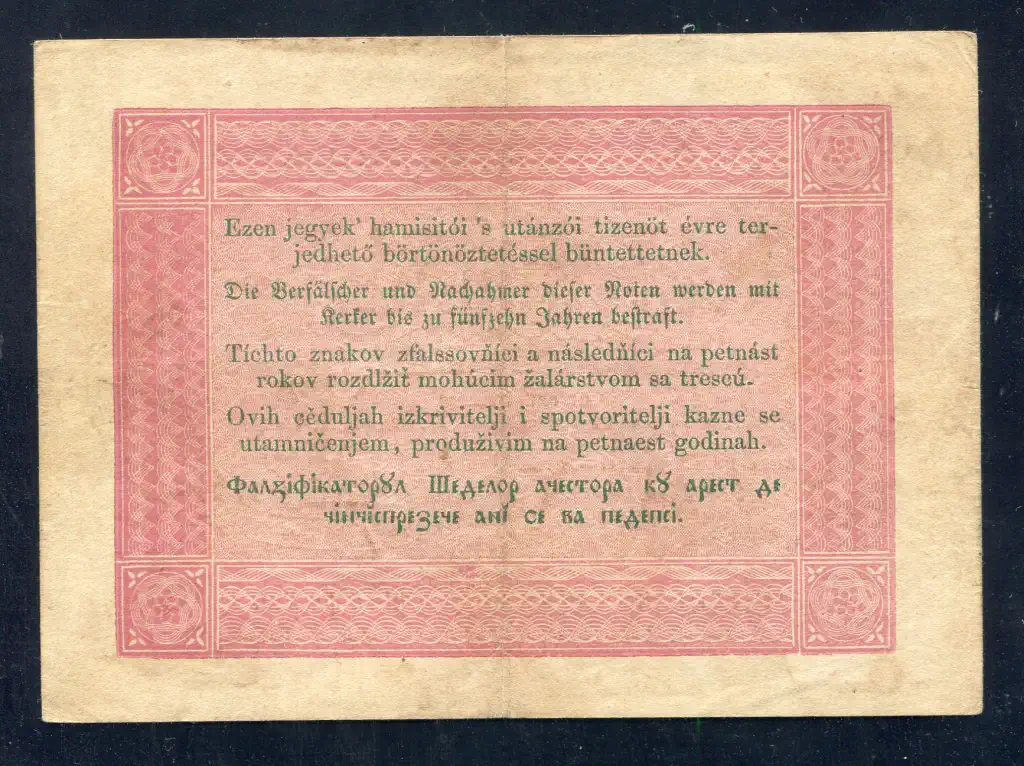 Ezen jegyek' hamisitói 's utánzói tizenöt évre ter-
jedhető börtönöztetéssel büntettetnek.
Die Verfälscher und Nachahmer dieser Noten werden mit
Kerker bis zu fünfzehn Jahren bestraft.
Tíchto znakov zfalssovňíci a následňíci na petnást
rokov rozdlžiť mohúcim žalárstvom sa trescú.
Ovih cèduljah izkrivitelji i spotvoritelji kazne se
utamničenjem, produživim na petnaest godinah.
Фалзіфікаторꙋл Шеделор ачестора кꙋ арест де
чінчіспрезече ані се ва педепсі.